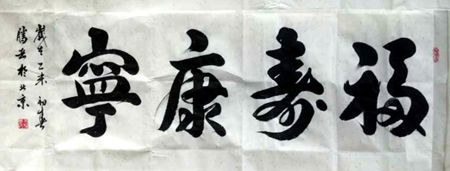 福寿康寧
歲在乙未初春
於北京